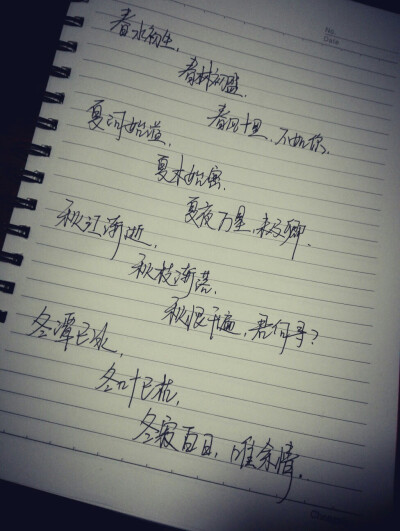 No.
Date
春水初生,
春林初盛,
春风十里,不如你.
夏河始溢,
夏木始寓,
夏夜万星,未及卿.
秋江渐逝,
秋枝渐落,
秋恨千遍,君何寻?
冬潭已冰,
冬叶已枯,
冬寂百日,唯余情.